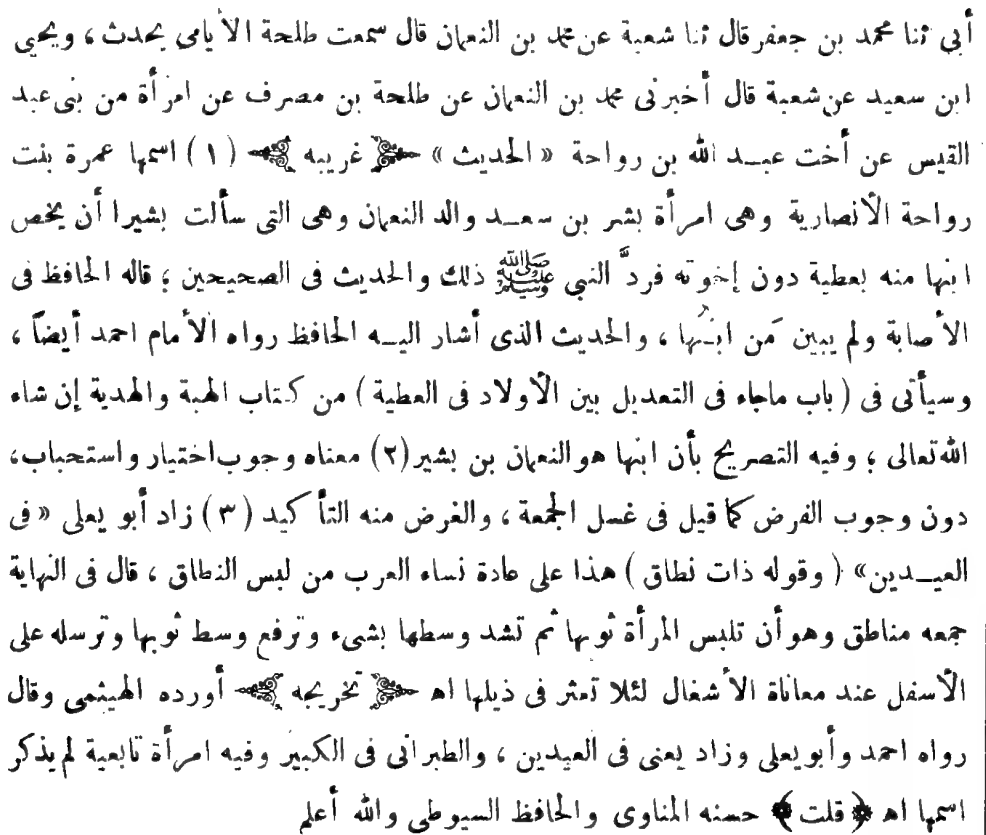 أبى ثنا محمد بن جعفر قال ثنا شعبة عن محمد بن النعمان قال سمعت طلحة الأيامى يحدث ، ويحيى
ابن سعيد عن شعبة قال أخبرنى محمد بن النعمان عن طلحة بن مصرف عن امرأة من بنى عبد
القيس عن أخت عبد الله بن رواحة « الحديث » غريبه (١) اسمها عمرة بنت
رواحة الأنصارية وهى امرأة بشر بن سعد والد النعمان وهى التى سألت بشيرا أن يخص
ابنها منه بعطية دون إخوته فردَّ النبي ﷺ ذلك والحديث فى الصحيحين ؛ قاله الحافظ فى
الأصابة ولم يبين مَن ابنُها ، والحديث الذى أشار اليه الحافظ رواه الأمام احمد أيضاً ،
وسيأتى فى ( باب ماجاء فى التعديل بين الأولاد فى العطية ) من كتاب الهبة والهدية إن شاء
الله تعالى ؛ وفيه التصريح بأن ابنها هو النعمان بن بشير (٢) معناه وجوب اختيار واستحباب،
دون وجوب الفرض كما قيل فى غسل الجمعة ، والغرض منه التأكيد (٣) زاد أبو يعلى « فى
العيدين» ( وقوله ذات نطاق ) هذا على عادة نساء العرب من لبس النطاق ، قال فى النهاية
جمعه مناطق وهو أن تلبس المرأة ثوبها ثم تشد وسطها بشىء وترفع وسط ثوبها وترسله على
الأسفل عند معاناة الأشغال لئلا تعثر فى ذيلها اهـ تخريجه أورده الهيثمى وقال
رواه احمد وأبو يعلى وزاد يعنى فى العيدين ، والطبرانى فى الكبير وفيه امرأة تابعية لم يذكر
اسمها اهـ ﴿ قلت ﴾ حسنه المناوى والحافظ السيوطى والله أعلم